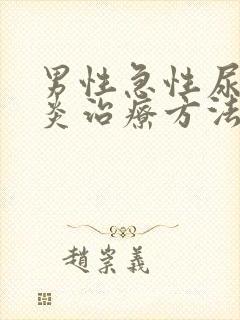 男性急性尿
炎治療方法
趙崇義